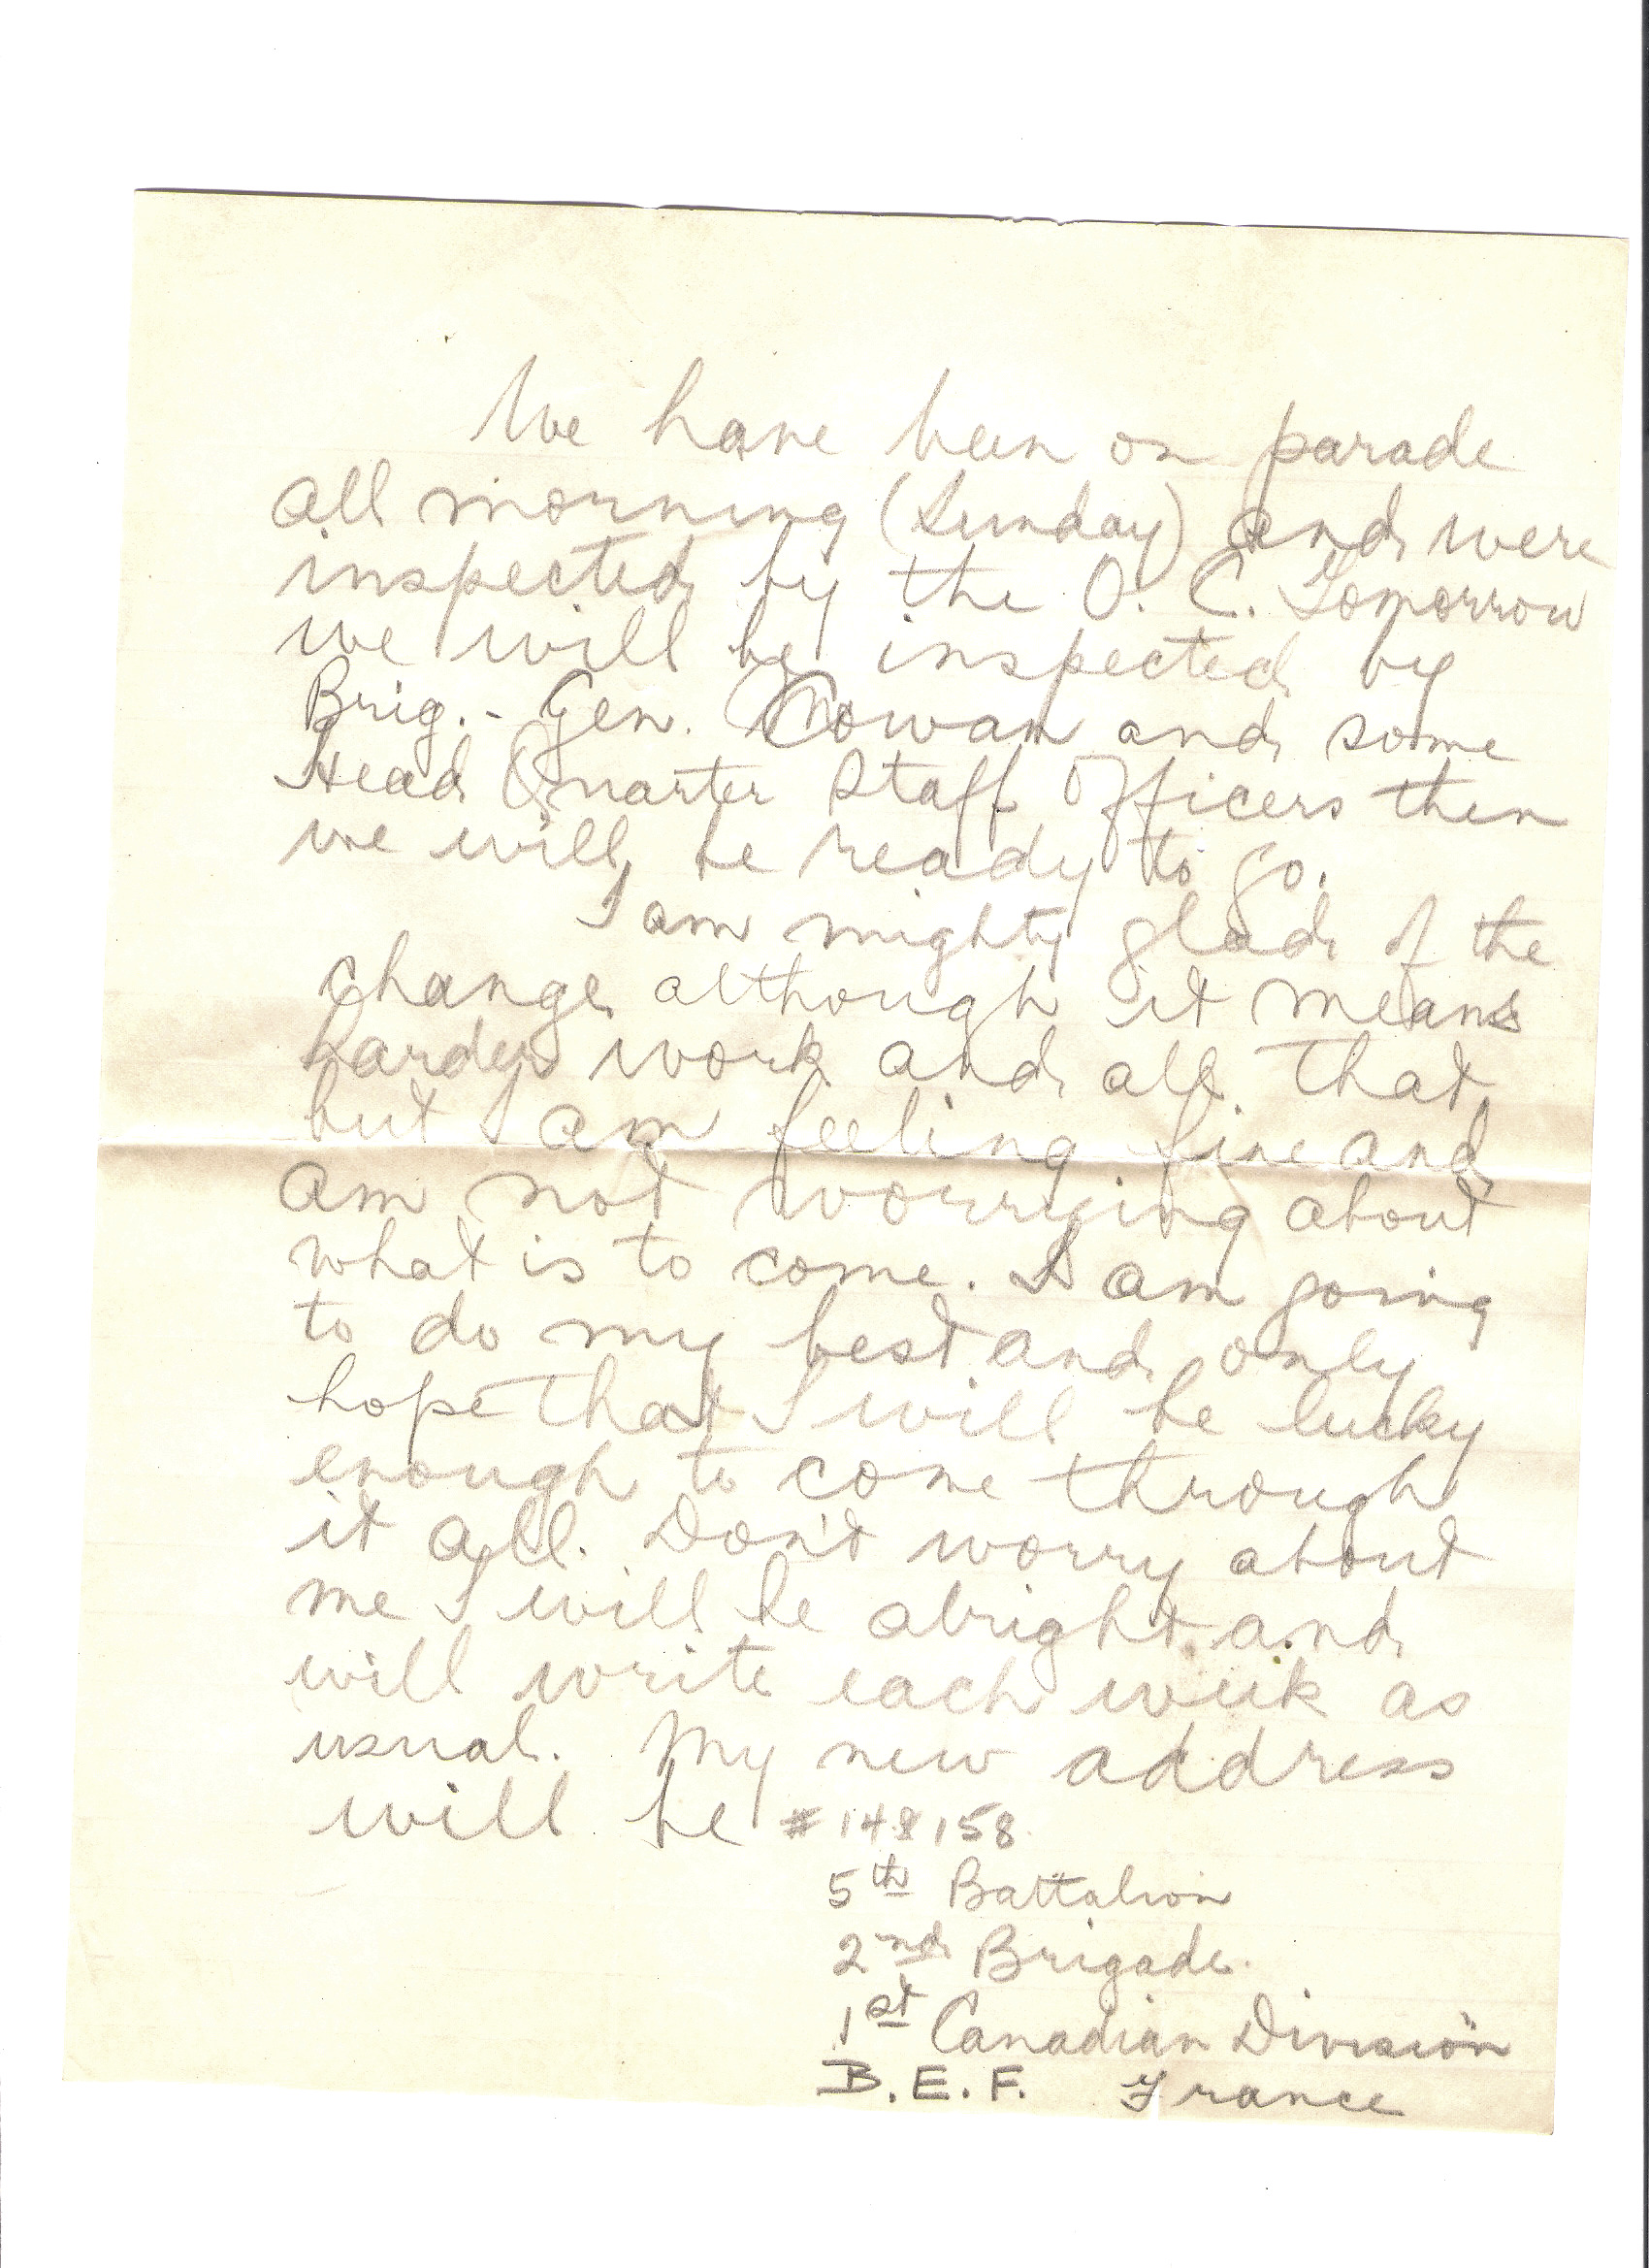 We have been on parade
all morning (Sunday) and were
inspected by the O. C. Tomorrow
we will be inspected by
Brig.- Gen. Cowan and some
Head Quarter Staff Officers then
we will be ready to go.
I am mighty glad of the
change although it means
harder work and all that
but I am feeling fine and
am not worrying about
what is to come. I am going
to do my best and only
hope that I will be lucky
enough to come through
it all. Don't worry about
me I will be alright and
will write each week as
usual. My new address
will be #148158
5th Battalion
2nd Brigade.
1st Canadian Division
B.E.F. France